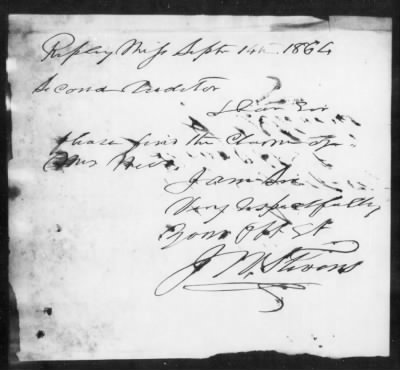 Ripley Miss Sept 14th 1864
Second Auditor
Dear Sir
Please find the Claim of
Mrs
I am Sir
Very respectfully
Your Obt St
J W Stivers